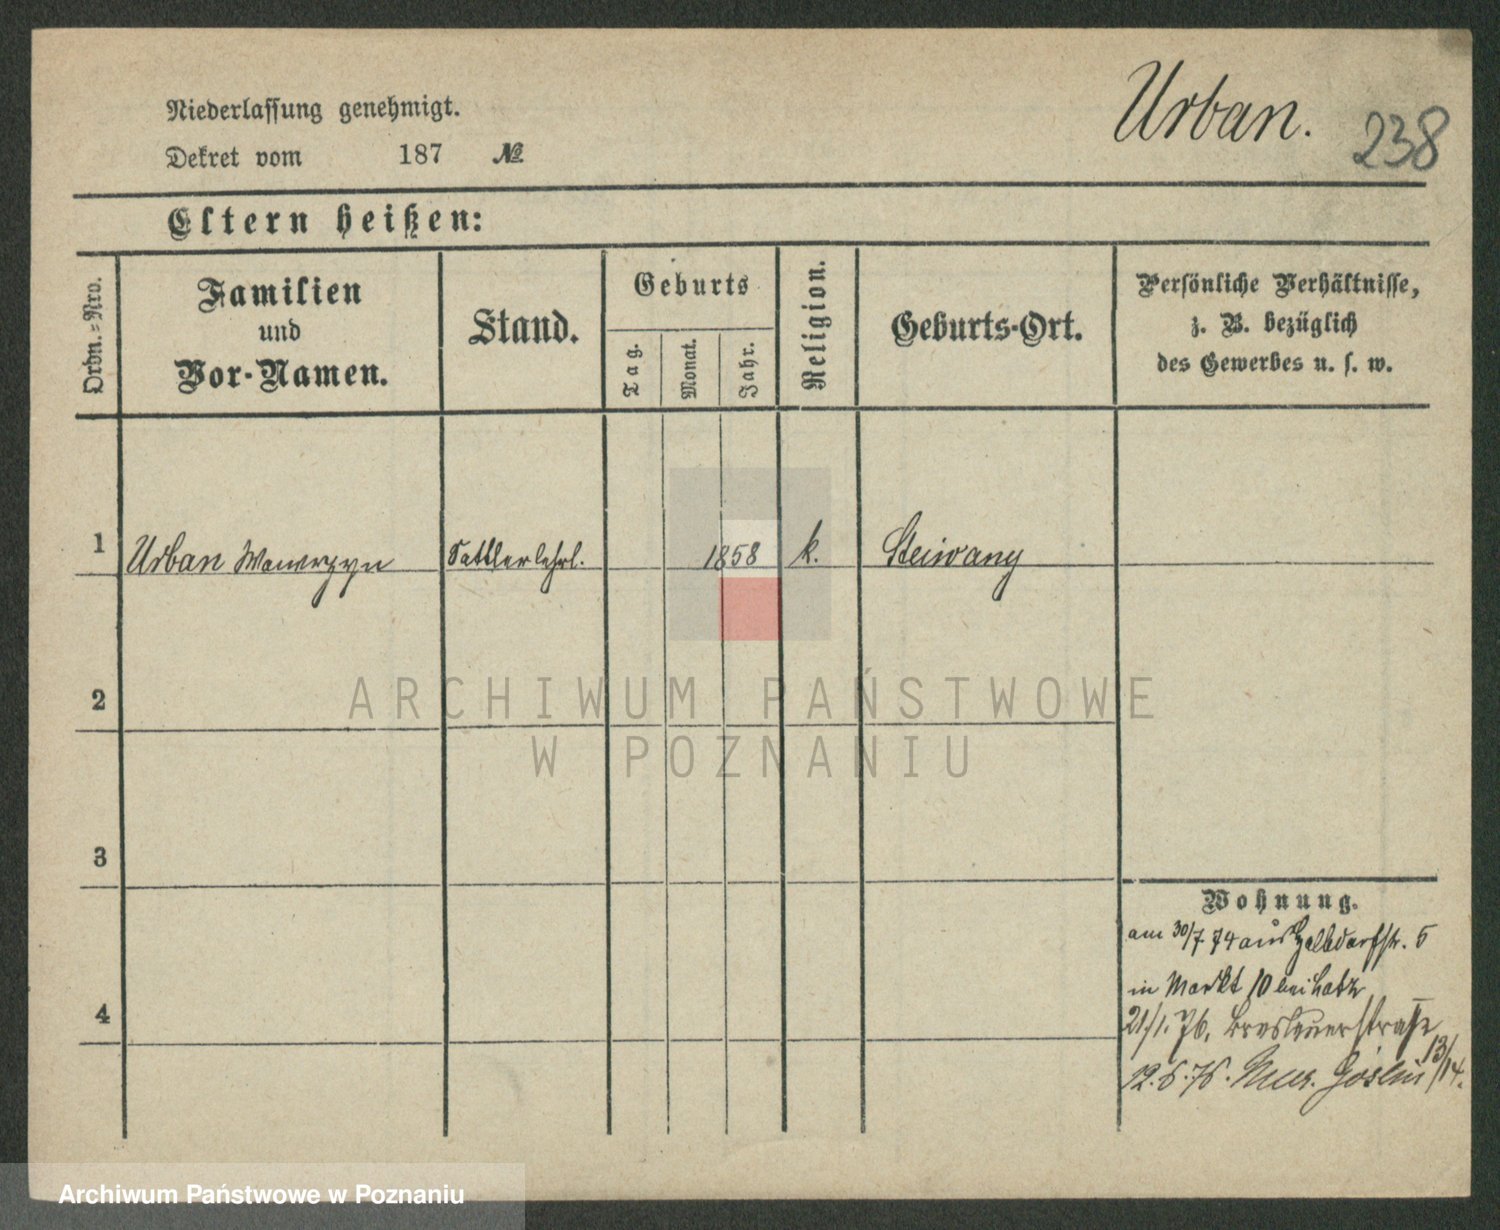 Urban.
238
Niederlassung genehmigt.
Dekret vom 187 №
Eltern heißen:
Ordn.=Nro.
Familien
und
Vor-Namen.
Stand.
Geburts
Tag.
Monat.
Jahr.
Religion.
Geburts-Ort.
Persönliche Verhältnisse,
z. B. bezüglich
des Gewerbes u. s. w.
1 Urban Wawrzyn Sattlerlehrl. 1858 k.
2
ARCHIWUM PAŃSTWOWE
W POZNANIU
3
Wohnung.
am 30/7 74 aus Halbdorfstr. 5
in Markt 10 bei
4
21/1. 76. Breslauerstraße
13/14.
12.6.76.
Archiwum Państwowe w Poznaniu